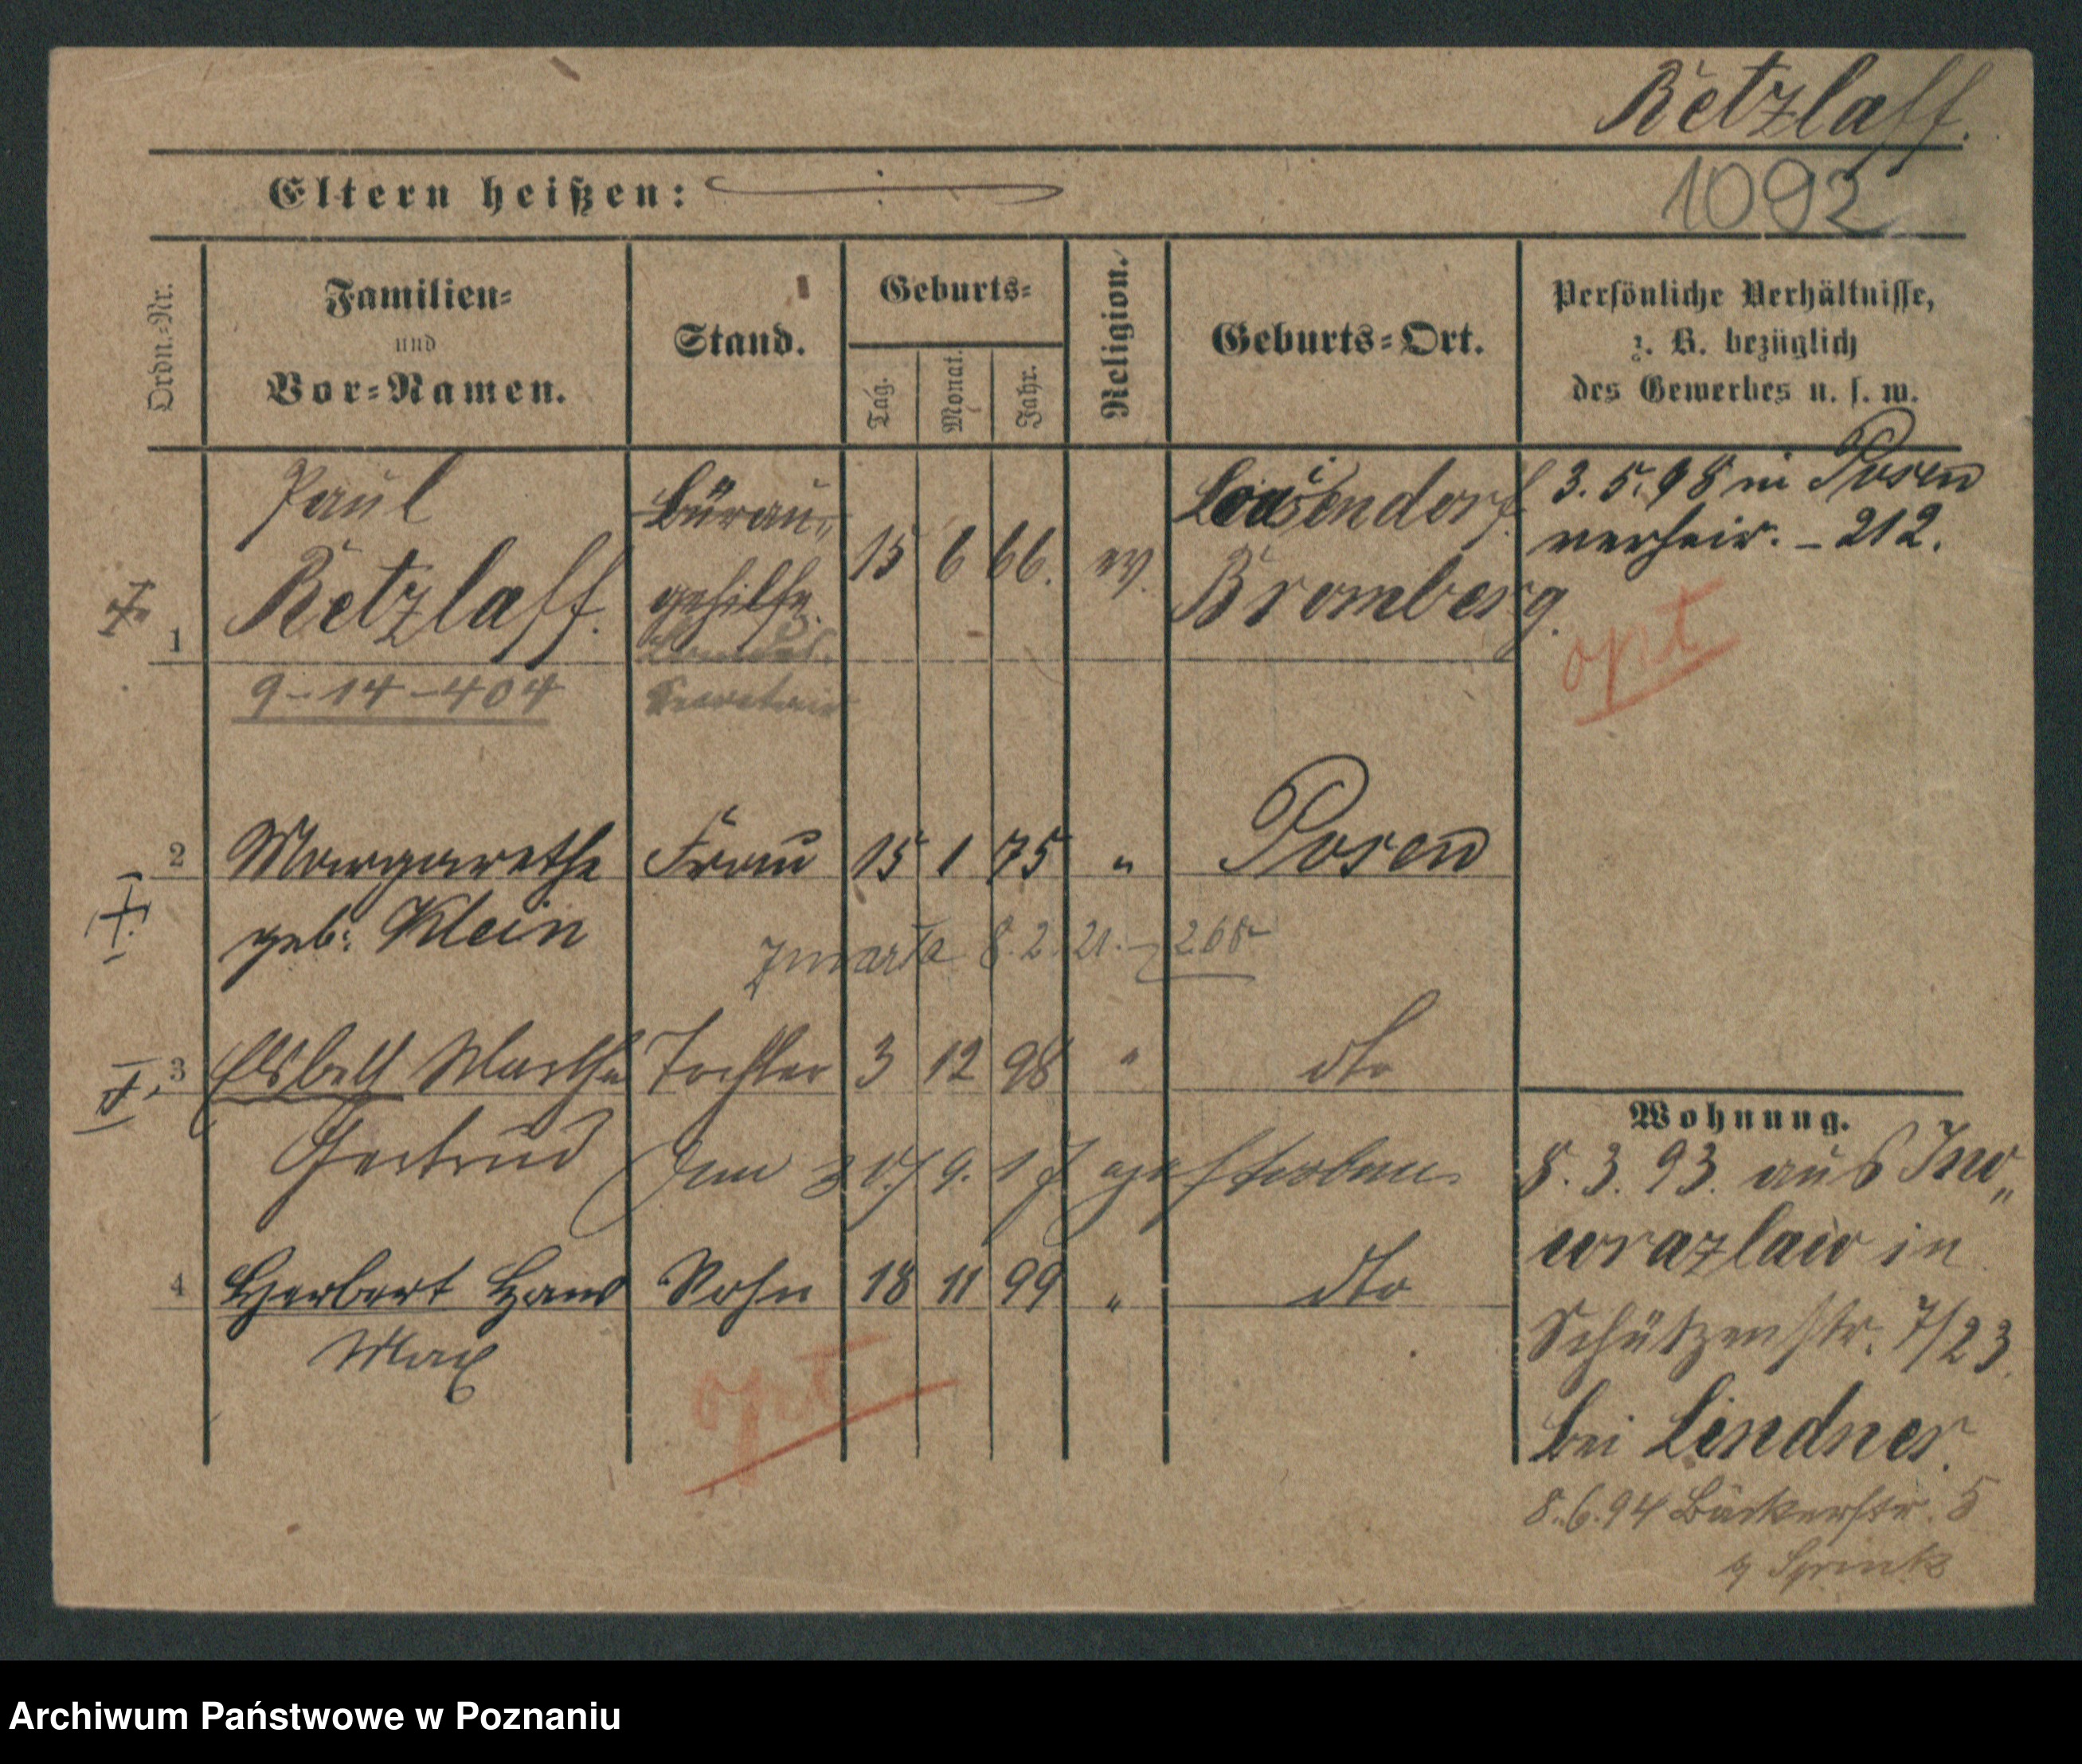 Retzlaff.
1092
Eltern heißen:
Ordn.=Nr.
Familien=
und
Vor=Namen.
Stand.
Geburts=
Tag.
Monat.
Jahr.
Religion.
Geburts=Ort.
Persönliche Verhältnisse,
z. B. bezüglich
des Gewerbes u. s. w.
Paul
Bürau„
Louisendorf
3. 5. 98 in Posen
verheir. – 212.
1 Retzlaff. gehilfe. 15 6 66. ev. Bromberg.
opt
9–14–404
Secretair
2 Margarethe Frau 15 1 75 " Posen
geb: Klein
zmarła 8. 2. 21. – 268
3 Elsbeth Martha Tochter 3 12 98 " dto
Gertrud
gestorben.
4 Herbert Hans Sohn 18 11 99 " dto
Max
opt
Wohnung.
8. 3. 93. aus Ino„
wrazlaw in
Schützenstr. 7/23.
bei Lindner.
8. 6. 94 Bäckerstr. 5
Archiwum Państwowe w Poznaniu